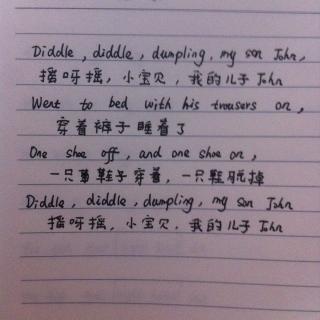 Diddle, diddle, dumpling, my son John,
摇呀摇, 小宝贝, 我的儿子 John
Went to bed with his trousers on,
穿着裤子睡着了
One shoe off, and one shoe on,
一只鞋子穿着, 一只鞋脱掉
Diddle, diddle, dumpling, my son John
摇呀摇, 小宝贝, 我的儿子 John